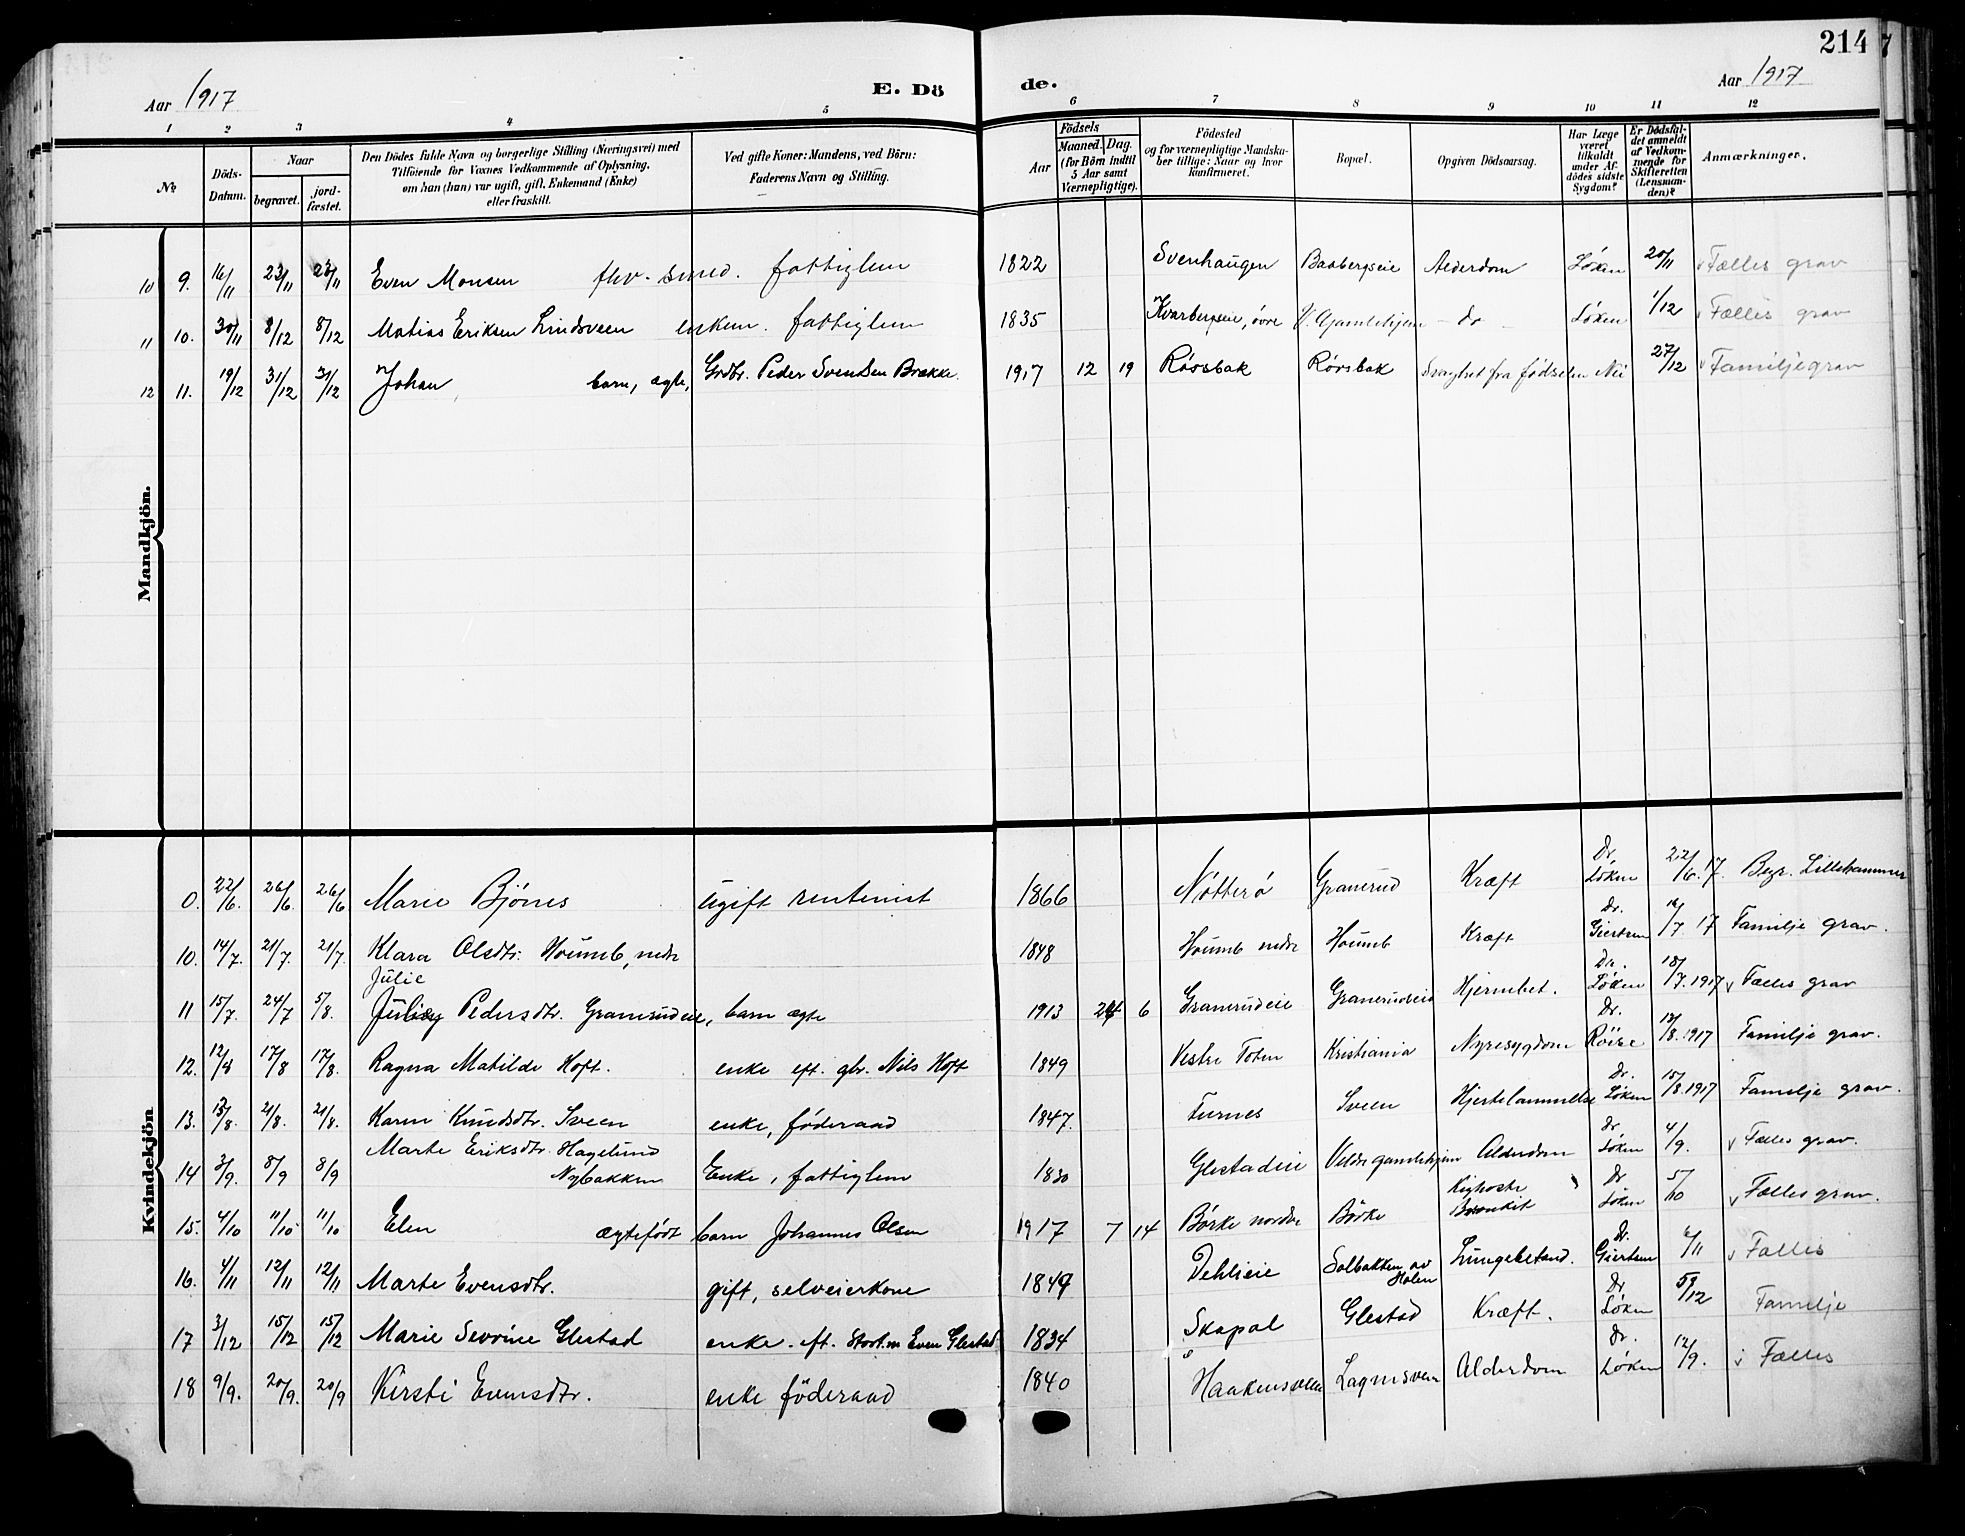 214 7
Aar 1917 E. Dö de. Aar 1917
1 2 3 4 5 6 7 8 9 10 11 12
№
Döds-Datum.
Naar
begravet.
jordfæstet.
Den Dödes fulde Navn og borgerlige Stilling (Næringsvei) med
Tilföiende for Voxnes Vedkommende af Oplysning,
om han (hun) var ugift, gift, Enkemand (Enke)
eller fraskilt.
Ved gifte Koner: Mandens, ved Börn:
Faderens Navn og Stilling.
Födsels
Aar
Maaned. Dag.
(for Börn indtil
5 Aar samt
Værnepligtige).
Födested
og for værnepligtige Mandskaber tillige: Naar og hvor
konfirmeret.
Bopæl.
Opgiven Dödsaarsag.
Har Læge
været
tilkaldt
under Afdödes sidste
Sygdom?
Er Dödsfaldet anmeldt
af Vedkommende for
Skifteretten
(Lensmanden)?
Anmærkninger.
Mandkjön.
10 9. 16/11 23/11 23/11 Even Monsen fhv. smed. fattiglem 1822 Svenhaugen Baabergseie Alderdom Løken 20/11 v Fælles grav
11 10. 30/11 8/12 8/12 Matias Eriksen Lindsveen enkem. fattiglem 1835 Kvarbergseie, øvre V. Gamlehjem - do - Løken 1/12 v Fælles grav
12 11. 19/12 31/12 31/12 Johan, barn, ægte, Grdbr. Peder Svendsen Brække. 1917 12 19 Rørsbak Rørsbak Svaghet fra fødselen Nei 27/12 v Familjegrav
Kvindekjön
0. 22/6 26/6 26/6 Marie Bjønes ugift rentenist 1866 Nøtterø Granerud Kræft Dr Løken 22/6. 17. Begr. Lillehammer
10. 14/7 21/7. 21/7. Klara Olsdtr. Houmb, nedre 1848 Houmb nedre Houmb Kræft Dr. Giertsen 16/7. 17 Familje grav.
Julie
11 15/7. 24/7 5/8. Pedersdtr. Granerudeie, barn ægte 1913 6 Granerudeie Granerudeie Hjernebet. Dr. Løken 18/7. 1917 v Fælles grav
12. 12/8 17/8 17/8. Ragna Matilde Hoft. enke eft. gbr. Nils Hoft 1849 Vestre Toten Kristiania Nyresygdom Dr. Røise 13/8. 1917 Familje grav.
13. 13/8. 21/8. 21/8. Karen Knudsdtr. Sveen enke, føderaad 1847. Furnes Sveen Hjertelammelse Dr. Løken 15/8. 1917 Familje grav.
Marte Eriksdtr. Hagelund
14 3/9. 8/9 8/9 Nybakken Enke, fattiglem 1830 Glestadeie Veldre gamlehjem Alderdom Dr Løken 4/9. v Fælles grav.
15. 4/10 11/10 11/10 Elen ægtefødt barn Johannes Olsen 1917 7 14 Børke nordre Børke Kighoste Bronkit Dr Løken 5/10 v Fælles grav.
16. 4/11 12/11 12/11 Marte Evensdtr. gift, selveierkone 1849 Dehlieie Solbakken av Holen Lungebetænd. Dr. Giertsen 6/11 v Fælles
17 3/12 15/12 15/12 Marie Severine Glestad enke. eft. Stort.m Even Glestad 1834 Skapal Glestad Kræft. Dr Løken 5/12 Familje
18 9/9. 20/9. 20/9 Kirsti Evensdtr. enke føderaad 1840 Haakensveen Lagmsveen Alderdom Dr. Løken 12/9. v Fælles